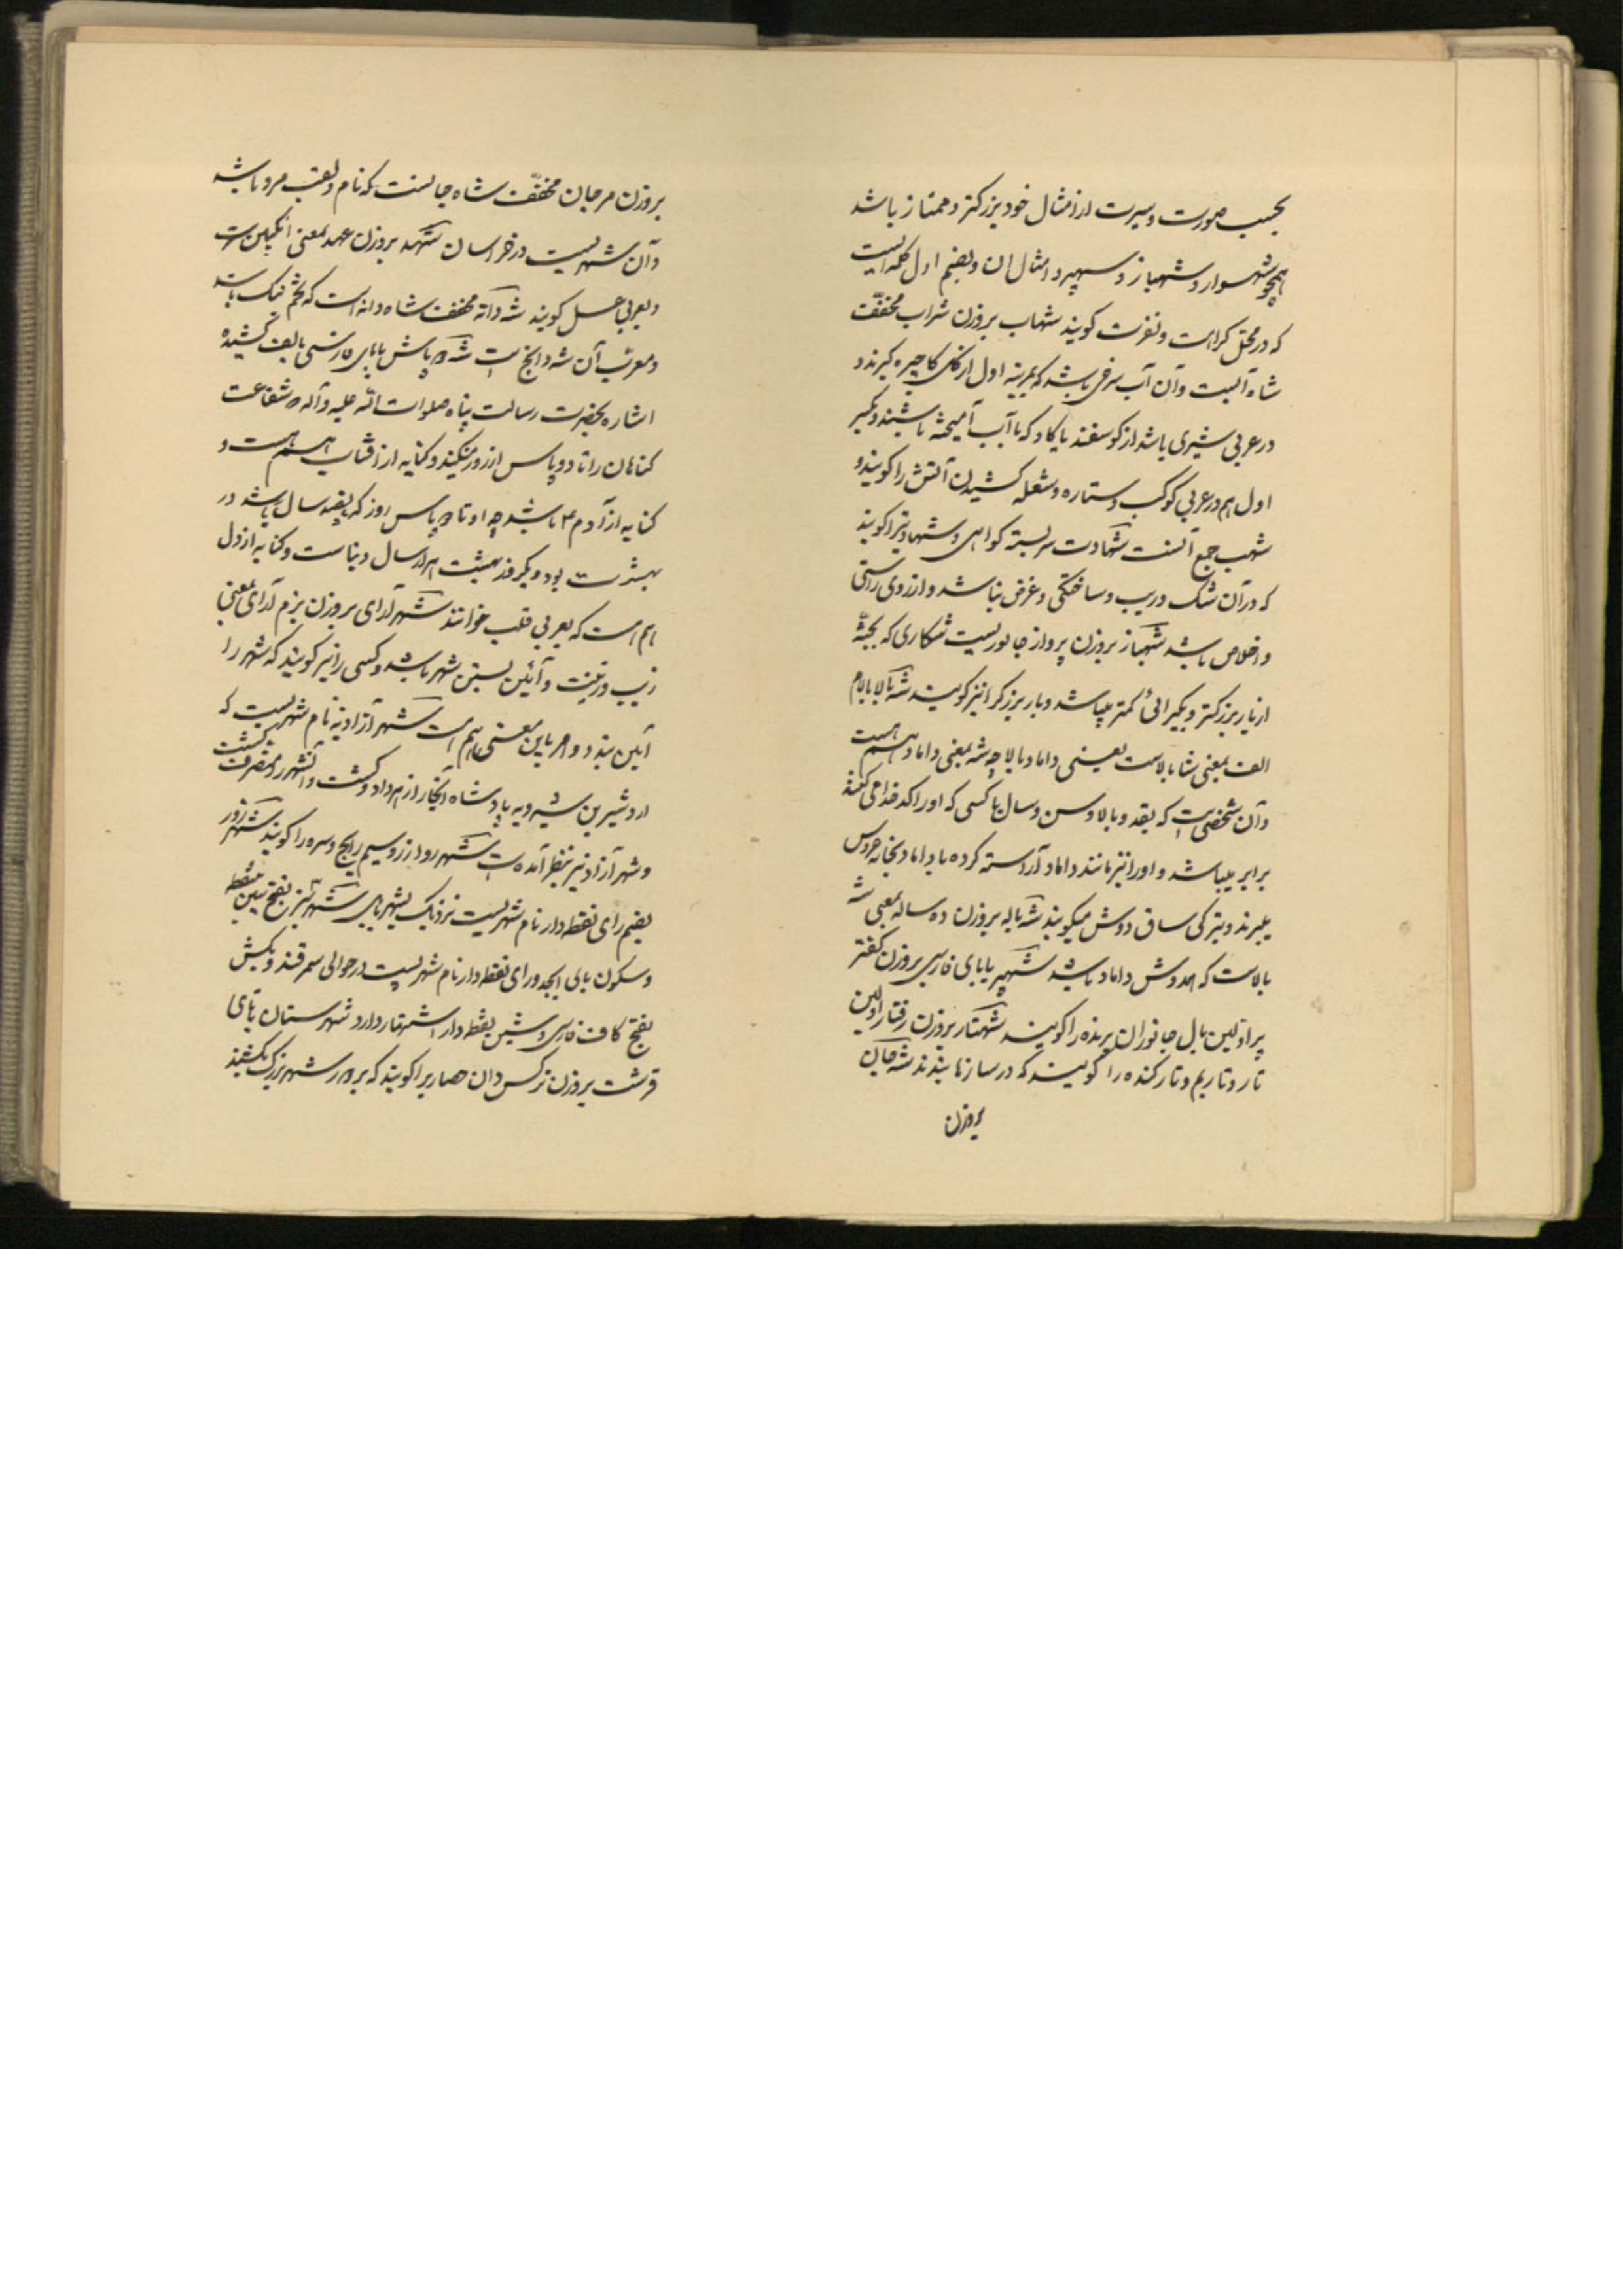 بحسب صورت و سیرت از امثال خود بزرکتر و ممتاز باشد
همچو شهسوار و شهباز و سپهر و امثال ان و بضم اول کلمه ایست
که در محل کراهت و نفرت کویند شهاب بروزن شراب مخفّف
شاه آبست و آن آب سرخی باشد که مرتبه اول از کل کاجیره کیرند و
در عربی شیری باشد از کوسفند یا کاو که با آب آمیخته باشند و بکسر
اول هم در عربی کوکب و ستاره و شعله کشیدن آتش را کویند و
شهب جمع آنست شهادت سربسته کواهی و شهادتیرا کویند
که در آن شک و ریب و ساختکی و غرض نباشد و از روی راستی
و اخلاص باشد شهباز بروزن پرواز جانوریست شکاری که بجثّه
از باز بزرکتر و بکیرائی کمتر میباشد و باز بزرکرا نیز کویند شه بالا بالام
الف بمعنی شاه بالاست یعنی داماد بالا چه شه بمعنی داماد هم هست
و آن شخصی است که بقد و بالا و سن و سال با کسی که او را کدخدا می کنند
برابر میباشد و او را نیز مانند داماد آراسته کرده با داماد بخانه عروس
میبرند و بترکی ساق دوش میکویند شه باله بروزن ده ساله بمعنی شه
بالاست که همدوش داماد باشد شهپر با بای فارسی بروزن کفتر
پر اولین بال جانوران پرنده را کویند شهتار بروزن رفتار اولین
تار و تار بم و تار کنده را کویند که در سازها بندند شه جان
بروزن
بروزن مرجان مخفّف شاه جانست که نام و لقب مرو باشد
و آن شهریست در خراسان شهد بروزن عهد بمعنی انکبین است
و بعربی عسل کویند شه دانه مخفف شاه دانه است که تخم بنک باشد
و معرب آن شه دانج است شه دو پاس با بای فارسی بالف کشیده
اشاره بحضرت رسالت پناه صلوات الله علیه و آله که شفاعت
کناهان را تا دو پاس از روز میکنند و کنایه از آفتاب هم هست و
کنایه از آدم ع باشد چه او تا دو پاس روز که پانصد سال باشد در
بهشت بود و یک روز بهشت هزار سال دنیاست و کنایه از دل
هم است که بعربی قلب خوانند شهر آرای بروزن بزم آرای بمعنی
زیب و زینت و آئین بستن شهر باشد و کسی را نیز کویند که شهر را
آئین بندد و امر باین معنی هم است شهر آزاد نه نام شهریست که
اردشیر بن شیرویه پادشاه آنجا را از هم داد و کشت و آن شهر را متصرف کشت
و شهر آزاد نیز بنظر آمده است شهر روا زر و سیم رایج و سره را کویند شهر زور
بضم زای نقطه دار نام شهریست نزدیک بشهر بابل شهر سبز بفتح سین بینقطه
و سکون بای ابجد و زای نقطه دار نام شهریست در حوالی سمرقند و بکش
بفتح کاف فارسی و شین نقطه دار اشتهار دارد شهرستان با تای
قرشت بروزن نرکس دان حصاریرا کویند که بر دور شهر بزرک بکشند